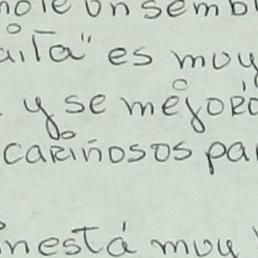 un semb
aita" es muy
y se mejoró
cariñosos pa
nestá muy